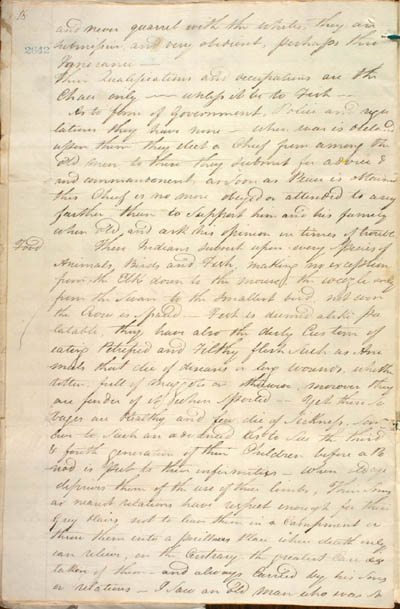 and never quarrel with the whites, they are
submissive and very obedient, perhaps thro
2642
Ignorance —
Their Qualifications and occupations are the
Chace only — unless it be to Fish —
As to form of Government, Police and regu
lations they have none — when war is
upon them they elect a Chief from among the
Old Men to whom they submit for advice &
and commandment, as soon as Peace is obtained
this Chief is no more obeyed or attended to any
farther than to Support him and his family
when Old, and ask his opinion in times of trouble
Food
These Indians subsist upon every species of
Animals, Birds and Fish, making no exception
from the Elk down to the mouse, the
from the Swan to the Smallest bird, not even
the Crow is Spared — Fish is deemed alike pa
latable, they have also the dirty Custom of
eating Putrified and Filthy flesh Such as Ani
mals that die of diseases or by wounds, whether
rotten, full of maggots or otherwise, moreover they
are fonder of it when spoiled — Yet these Sa
vages are Healthy and few die of Sickness,
to Such an advanced as to See the third
& fourth generation of their Children before a Pe
riod is put to their infirmities — When old age
deprives them of the use of their limbs, Their Sons
or nearest relations have respect enough for their
grey Hairs, not to leave them in a Encampment or
throw them into a pitiless Place where death only
can relieve, on the Contrary the greatest Care is
taken of them — and always Carried by his Sons
or relations — I saw an Old man who was